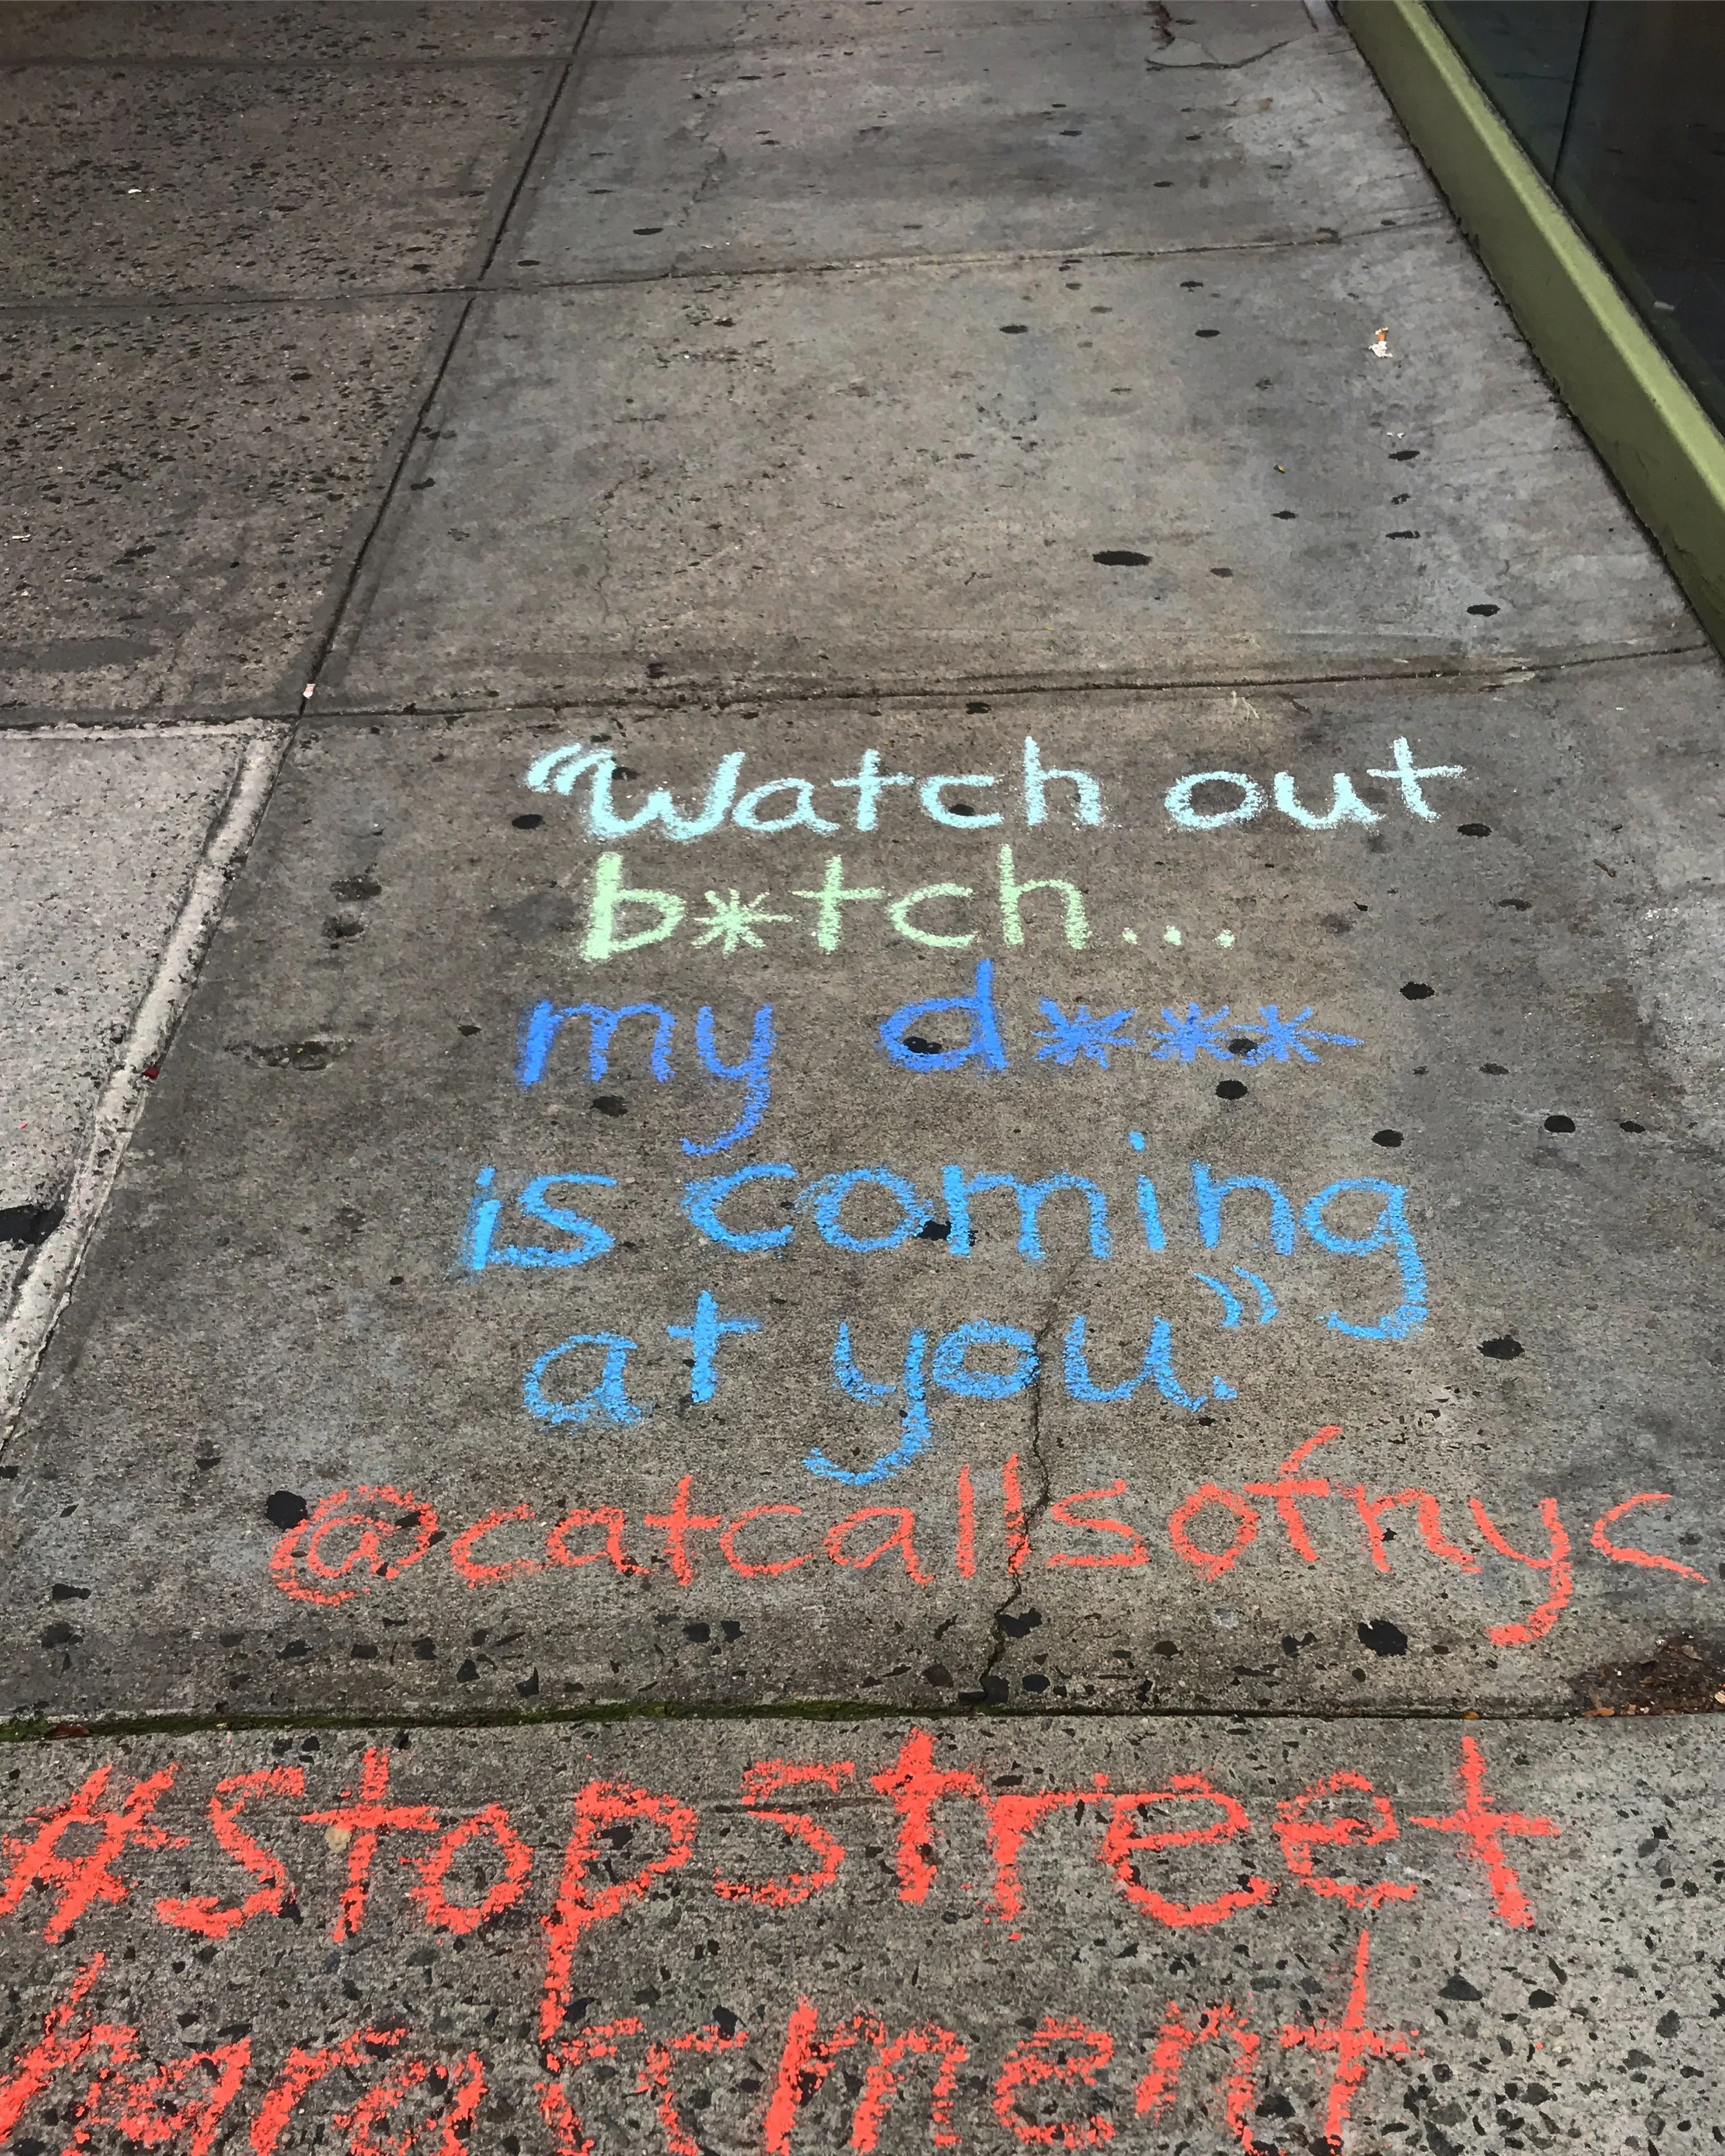 “Watch out
b*tch...
my d***
is coming
at you.”
@catcallsofnyc
#stopstreet
harassment